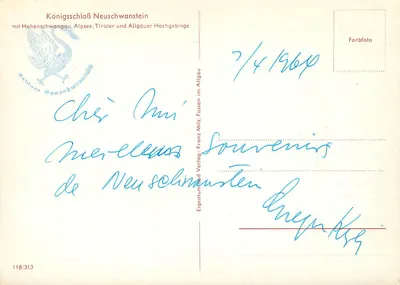 Königsschloß Neuschwanstein
mit Hohenschwangau, Alpsee, Tiroler und Allgäuer Hochgebirge
7/4/1964
Farbfoto
Cher
meilleurs souvenirs
de Neuschwanstein
Eigentum und Verlag: Franz Milz, Füssen im Allgäu
118/313